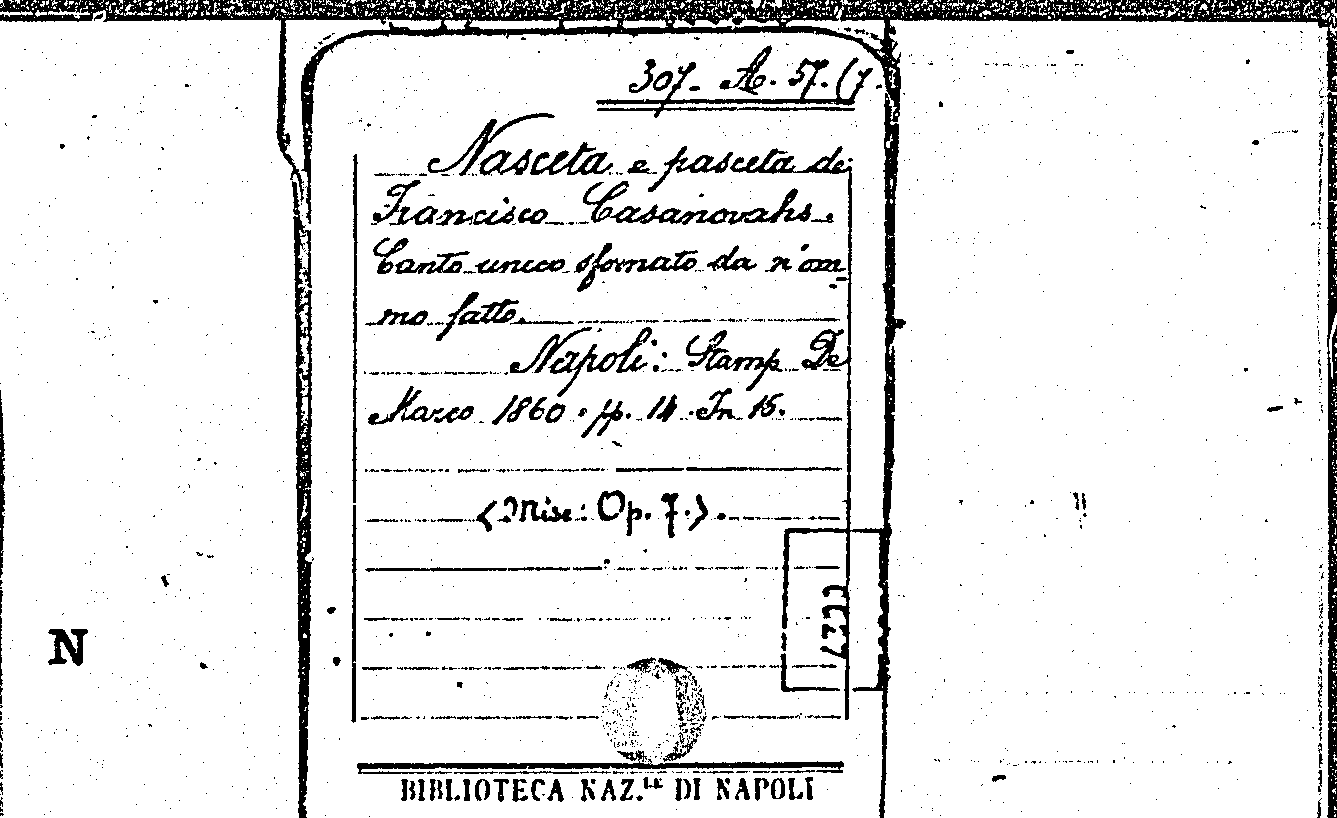 307. A. 57. (7.
Nasceta e pasceta de
Francisco Casanovahs.
Canto uneco sfornato da n'om
mo fatto.
Napoli: Stamp De
Marco 1860. pp. 14. In 15.
(Misc: Op. 7.).
N
BIBLIOTECA NAZ.LE DI NAPOLI